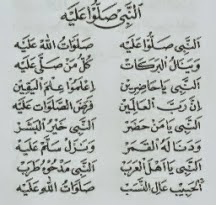 اَلنَّبِى صَلُّوْا عَلَيْه
اَلنَّبِى صَلُّوْا عَلَيْه صَلَوَاتُ اللهِ عَلَيْه
وَيَنَالُ الْبَرَكَاتْ كُلُّ مَنْ صَلَّى عَلَيْه
اَلنَّبِى يَاحَاضِرِيْنْ اِعْلَمُوْا عِلْمَ الْيَقِيْنْ
اِنَّ رَبَّ الْعَالَمِيْنْ فَرَضَ الصَّلَوَاتْ عَلَيْه
اَلنَّبِى يَامَنْ حَضَرْ اَلنَّبِى خَيْرُ الْبَشَرْ
وَدَنَا لَهُ الْقَمَرْ وَنَزَلْ سَلَّمْ عَلَيْه
اَلنَّبِى يَااَهْلَ الْعَرَبْ اَلنَّبِى مَدْحُهُ طَرَبْ
اَلْحَبِيْبْ عَالِ النَّسَبْ صَلَوَاتُ اللهِ عَلَيْه